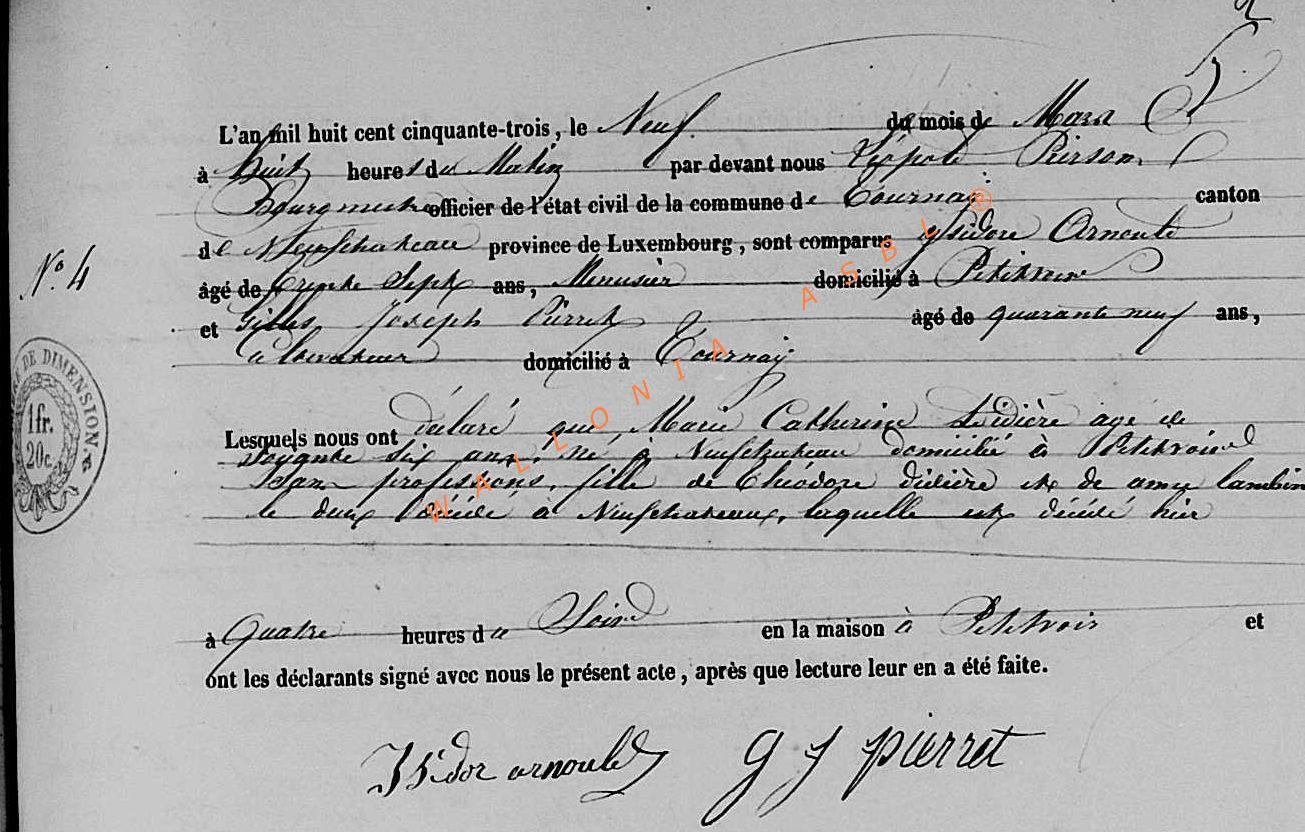 L'an mil huit cent cinquante-trois, le Neuf du mois de Mars
à huit heures du Matin par devant nous Léopold Pierson
Bourgmestre officier de l'état civil de la commune de Tournay canton
de Neufchateau province de Luxembourg, sont comparus ysidore Arnould
N° 4
âgé de trente Sept ans, Menusier domicilié à Petitvoir
et Gilles Joseph Pierret âgé de quarante neuf ans,
Cultivateur domicilié à Tournay
DE DIMENSION
1 fr.
20 c.
Lesquels nous ont déclaré que Marie Catherine Didière agé de
soixante six ans, né à Neufchateau domicilié à Petitvoir
sans professions, fille de Théodore didière et de lambin
le deux décidé à Neufchateaux, laquelle est décidé hier
à Quatre heures du Soir en la maison à Petitvoir et
ont les déclarants signé avec nous le présent acte, après que lecture leur en a été faite.
Isidor arnould G J pierret
WALLONIA ASBL ®